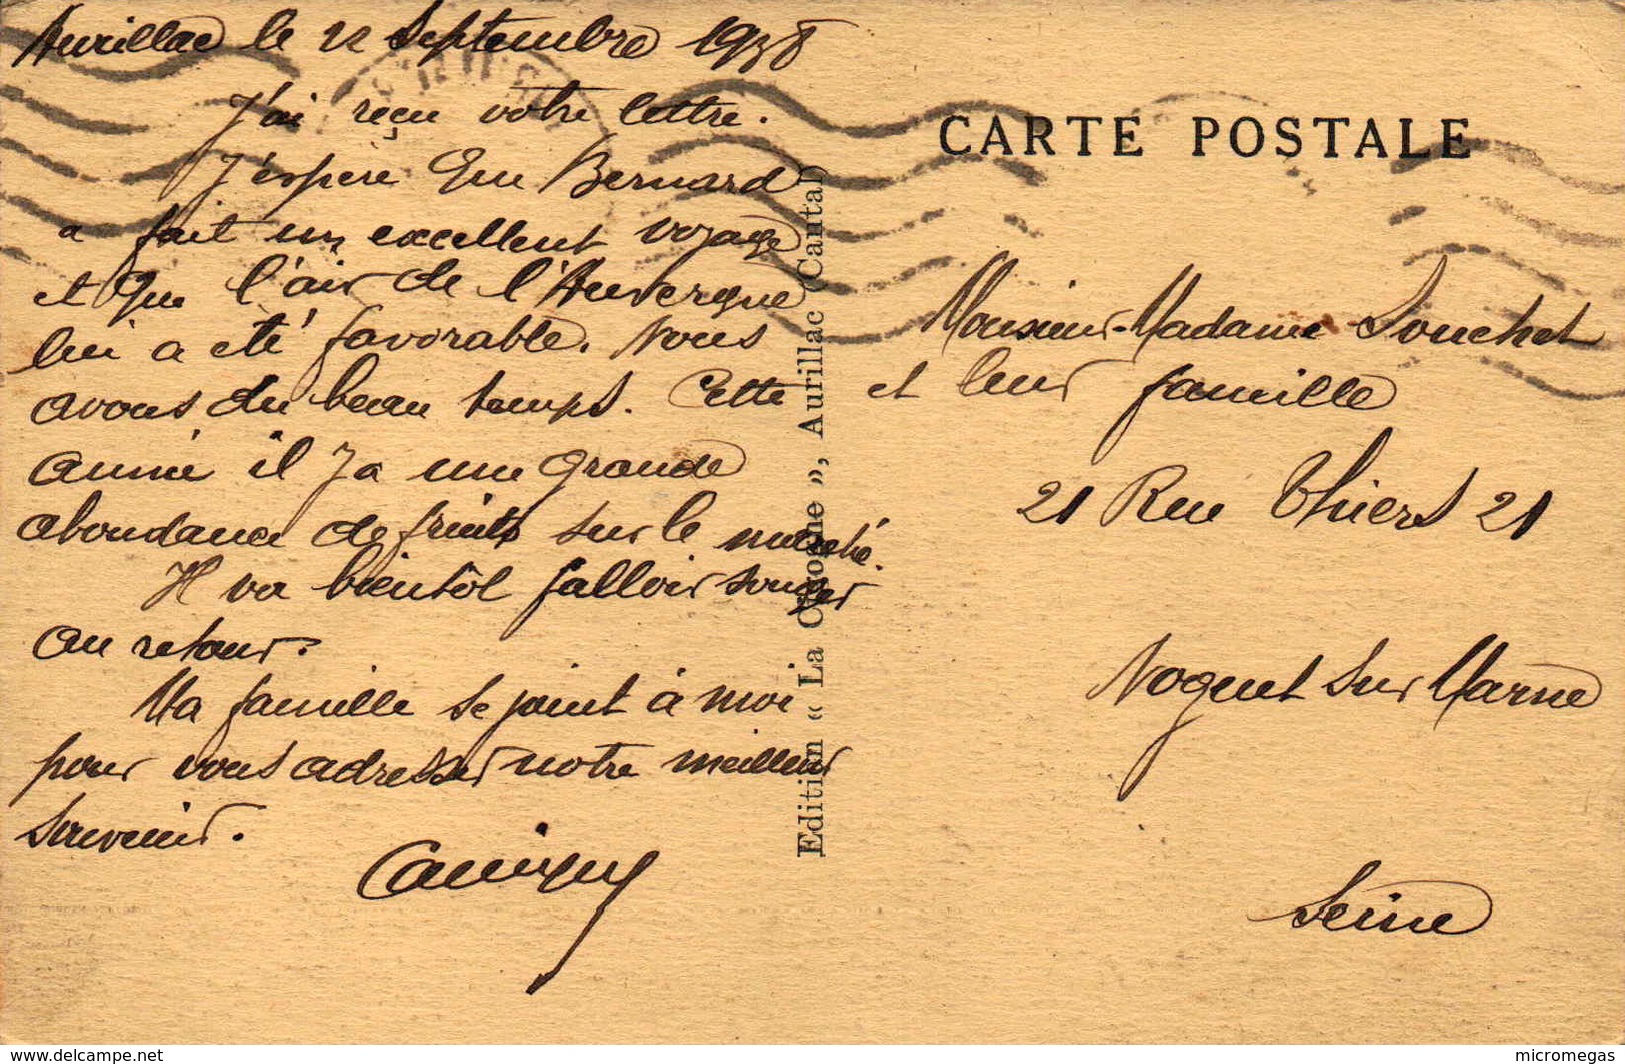 Aurillac le 12 Septembre 1938
J'ai reçu votre lettre.
J'espère que Bernard
a fait un excellent voyage
et que l'air de l'Auvergne
lui a été favorable. Nous
avons du beau temps. Cette
année il y a une grande
abondance de fruits sur le marché.
Il va bientôt falloir songer
au retour.
Ma famille se joint à moi
pour vous adresser notre meilleur
souvenir.
CARTE POSTALE
Edition « La Cigogne », Aurillac (Cantal)
Monsieur-Madame Souchet
et leur famille
21 Rue Thiers 21
Nogent sur Marne
Seine
www.delcampe.net
micromegas